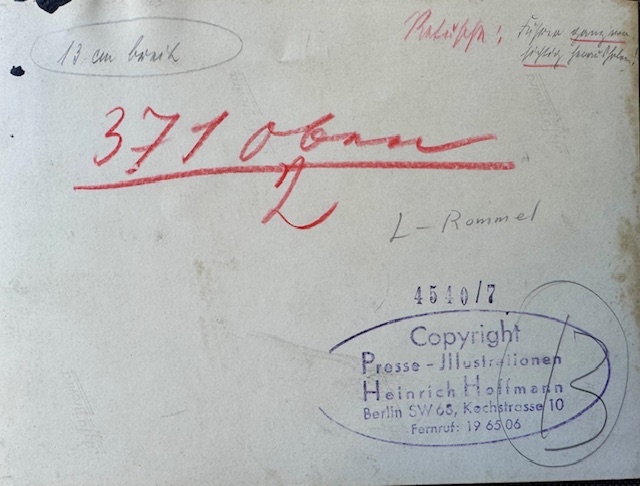 13 cm breit
Retusche: Führer ganz vor-
sichtig herausholen!
371 oben
2
L - Rommel
4540/7
Copyright
Presse - Illustrationen
Heinrich Hoffmann
Berlin SW 68, Kochstrasse 10
Fernruf: 19 65 06
B